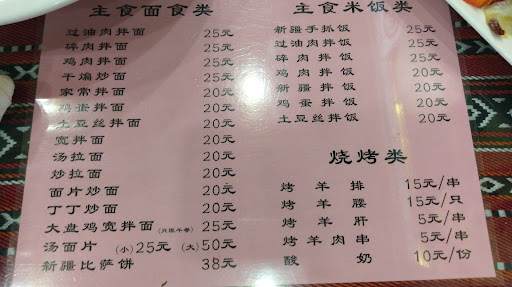 主食面食类
过油肉拌面 25元
碎肉拌面 25元
鸡肉拌面 25元
干煸炒面 20元
家常拌面 20元
鸡蛋拌面 20元
土豆丝拌面 20元
宽拌面 20元
汤拉面 20元
炒拉面 20元
面片炒面 20元
丁丁炒面 20元
大盘鸡宽拌面 25元
汤面片 (小)25元 (大)50元
新疆比萨饼 38元
主食米饭类
新疆手抓饭 25元
过油肉拌饭 25元
碎肉拌饭 25元
鸡肉拌饭 25元
新疆拌饭 20元
鸡蛋拌饭 20元
土豆丝拌饭 20元
烧烤类
烤羊排 15元/串
烤羊腰 15元/只
烤羊肝 5元/串
烤羊肉串 5元/串
酸奶 10元/份